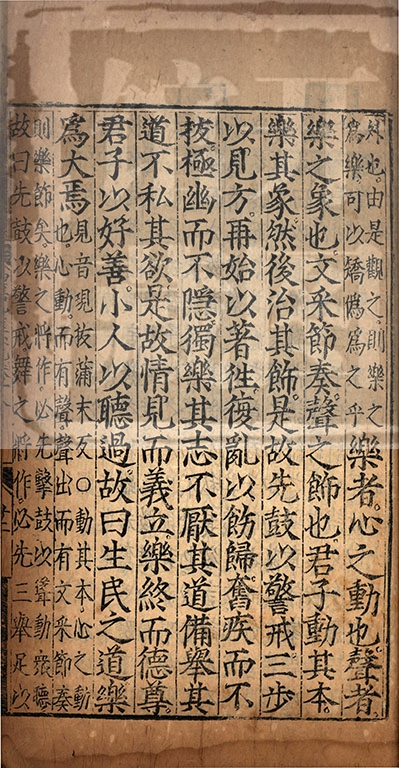 外也由是觀之則樂之
爲樂可以矯僞爲之乎
樂者心之動也聲者
樂之象也文采節奏聲之飾也君子動其本
樂其象然後治其飾是故先鼓以警戒三步
以見方再始以著徃復亂以飭歸奮疾而不
拔極幽而不隱獨樂其志不厭其道備舉其
道不私其欲是故情見而義立樂終而德尊
君子以好善小人以聽過故曰生民之道樂
爲大焉
見音現拔蒲末反○動其本心之動
也心動而有聲聲出而有文采節奏
則樂飾矣樂之將作必先擊鼓以聳動衆聽
故曰先鼓以警戒舞之將作必先三舉足以